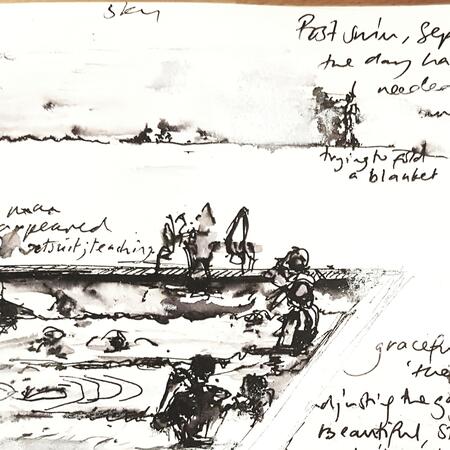 sky
Post swim, Sep
the day ha
needed
trying to fold
a blanket
man
appeared
wetsuit, teaching
graceful
the
adjusting the g
Beautiful, s